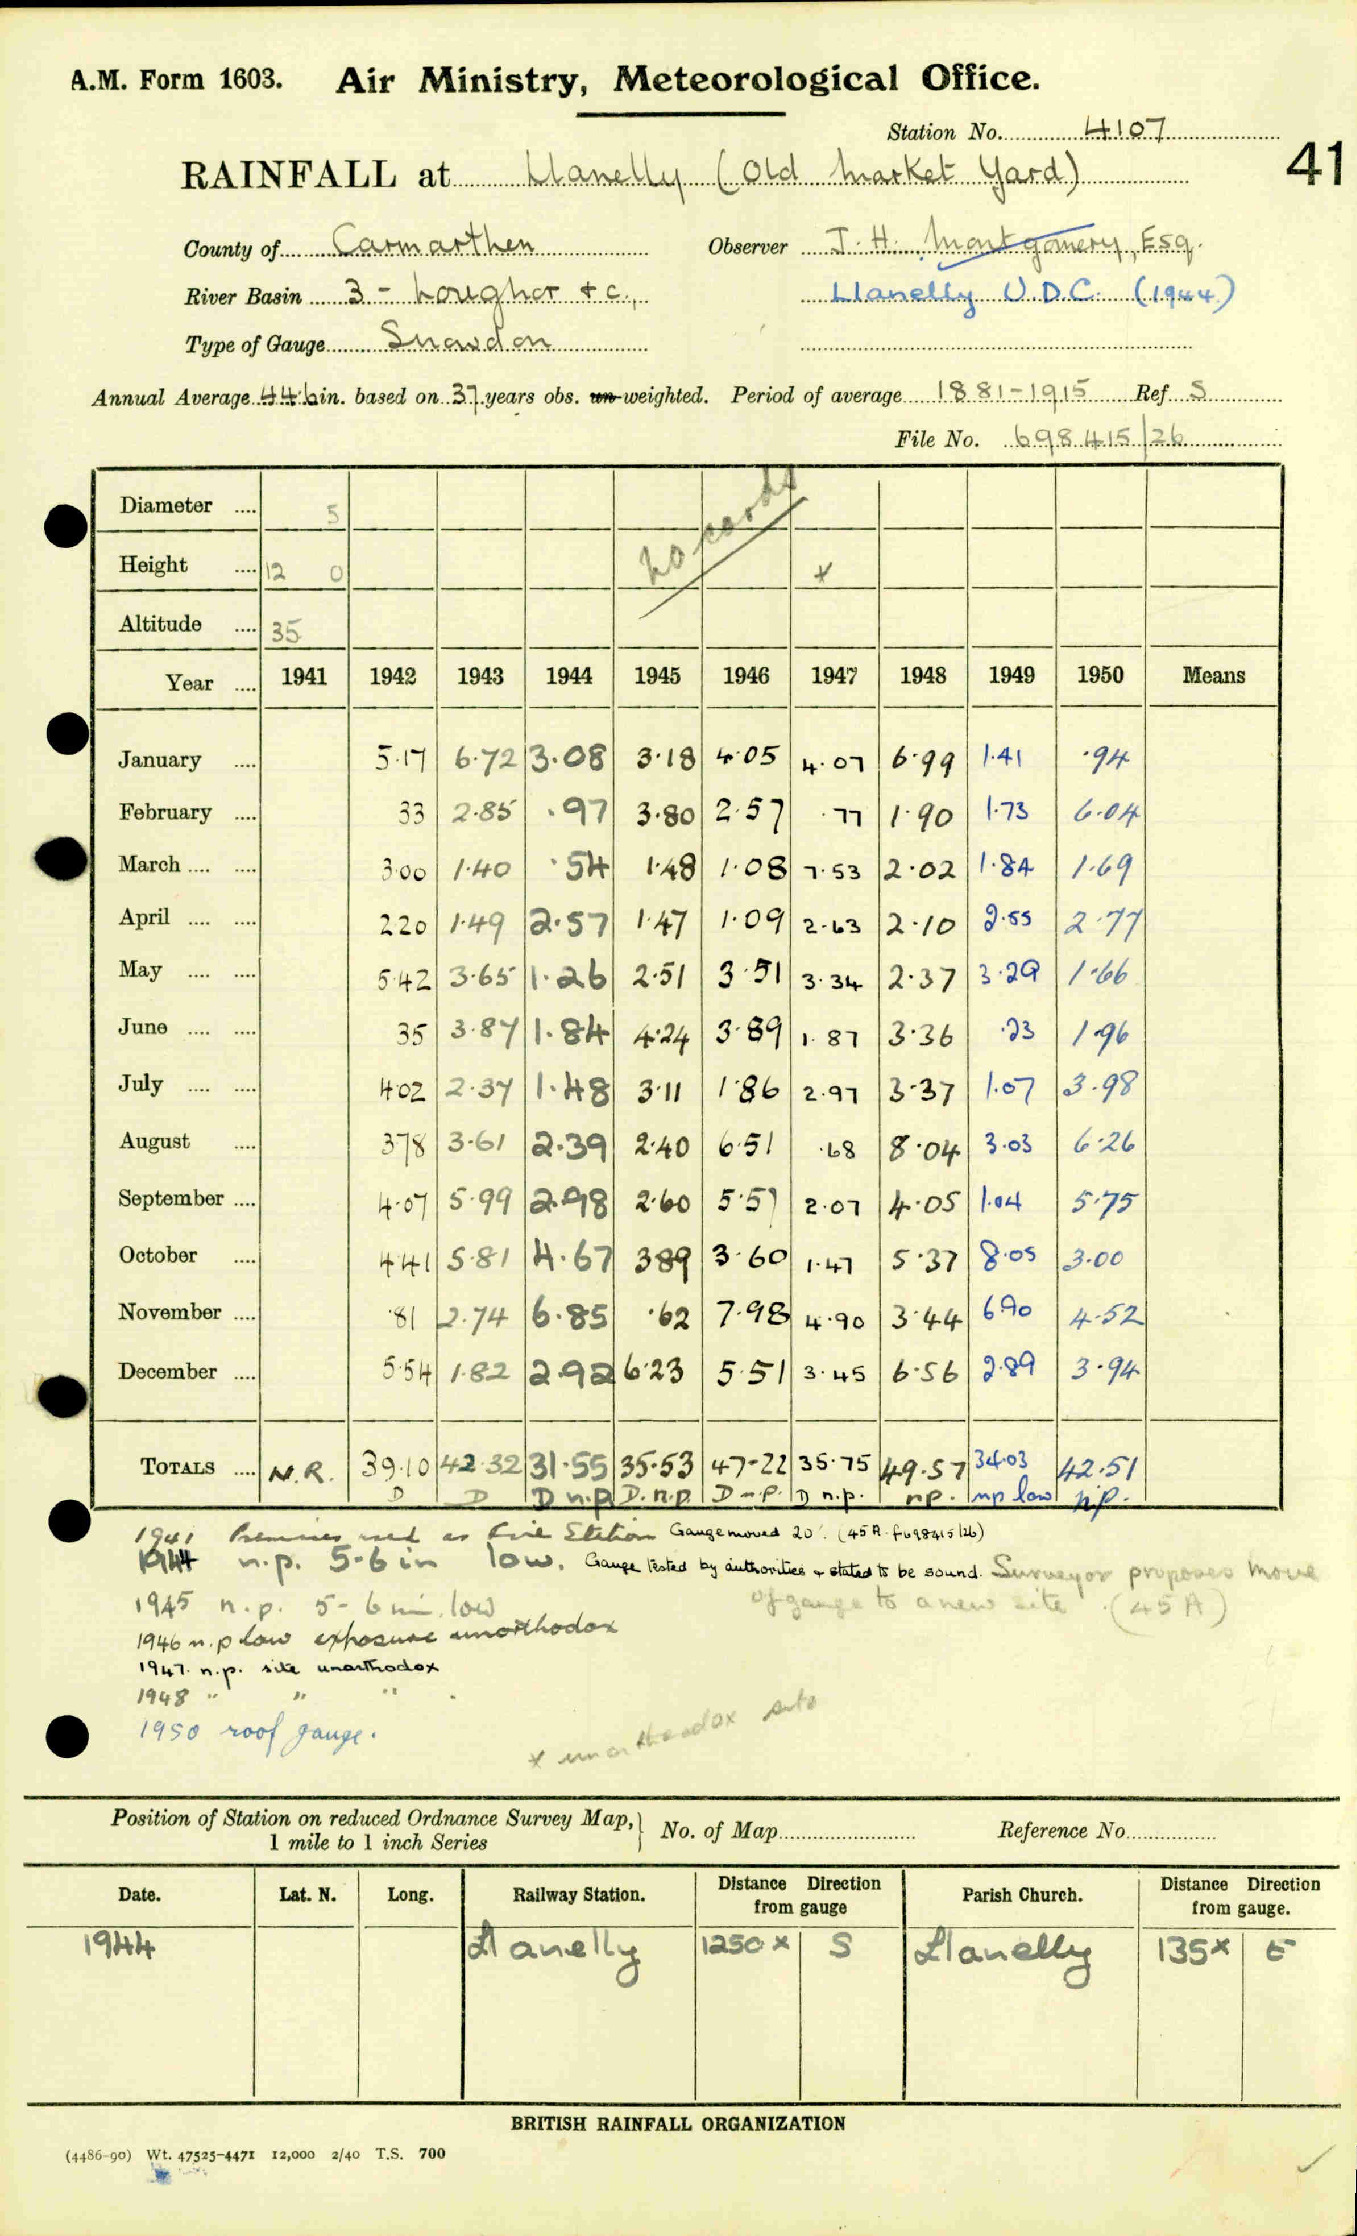 A.M. Form 1603. Air Ministry, Meteorological Office.
Station No. 4107
41
RAINFALL at Llanelly (Old Market Yard)
County of Carmarthen Observer J. H. Montgomery, Esq.
River Basin 3 - Loughor & c., Llanelly U.D.C. (1944)
Type of Gauge Snowdon
Annual Average 44.6 in. based on 37 years obs. un-weighted. Period of average 1881-1915 Ref S
File No. 698415/26
Diameter .... 5
no cards
Height .... 12 0 *
Altitude .... 35
Year .... 1941 1942 1943 1944 1945 1946 1947 1948 1949 1950 Means
January .... 5.17 6.72 3.08 3.18 4.05 4.07 6.99 1.41 .94
February .... 33 2.85 .97 3.80 2.57 .77 1.90 1.73 6.04
March .... .... 3.00 1.40 .54 1.48 1.08 7.53 2.02 1.84 1.69
April .... .... 220 1.49 2.57 1.47 1.09 2.63 2.10 2.55 2.77
May .... .... 5.42 3.65 1.26 2.51 3.51 3.34 2.37 3.29 1.66
June .... .... 35 3.87 1.84 4.24 3.89 1.87 3.36 .23 1.96
July .... .... 402 2.37 1.48 3.11 1.86 2.97 3.37 1.07 3.98
August .... 378 3.61 2.39 2.40 6.51 .68 8.04 3.03 6.26
September .... 4.07 5.99 2.98 2.60 5.57 2.07 4.05 1.04 5.75
October .... 441 5.81 4.67 389 3.60 1.47 5.37 8.05 3.00
November .... .81 2.74 6.85 .62 7.98 4.90 3.44 6.90 4.52
December .... 5.54 1.82 2.92 6.23 5.51 3.45 6.56 2.89 3.94
TOTALS .... N.R. 39.10 42.32 31.55 35.53 47.22 35.75 49.57 34.03 42.51
D D D n.p. D. n.p. D n.p. D n.p. n.p. np low n.p.
1941 Premises used as Fire Station Gauge moved 20'. (45A. f698415/26)
1944 n.p. 5-6 in low. Gauge tested by authorities & stated to be sound. Surveyor proposes move
of gauge to a new site (45A)
1945 n.p. 5-6 in. low
1946 n.p low exposure unorthodox
1947. n.p. site unorthodox
1948 " " " .
1950 roof gauge.
* unorthodox site
Position of Station on reduced Ordnance Survey Map,} No. of Map Reference No.
1 mile to 1 inch Series
Date. Lat. N. Long. Railway Station. Distance Direction from gauge Parish Church. Distance Direction from gauge.
1944 Llanelly 1250 x S Llanelly 135 x E
BRITISH RAINFALL ORGANIZATION
(4486-90) Wt. 47525-4471 12,000 2/40 T.S. 700